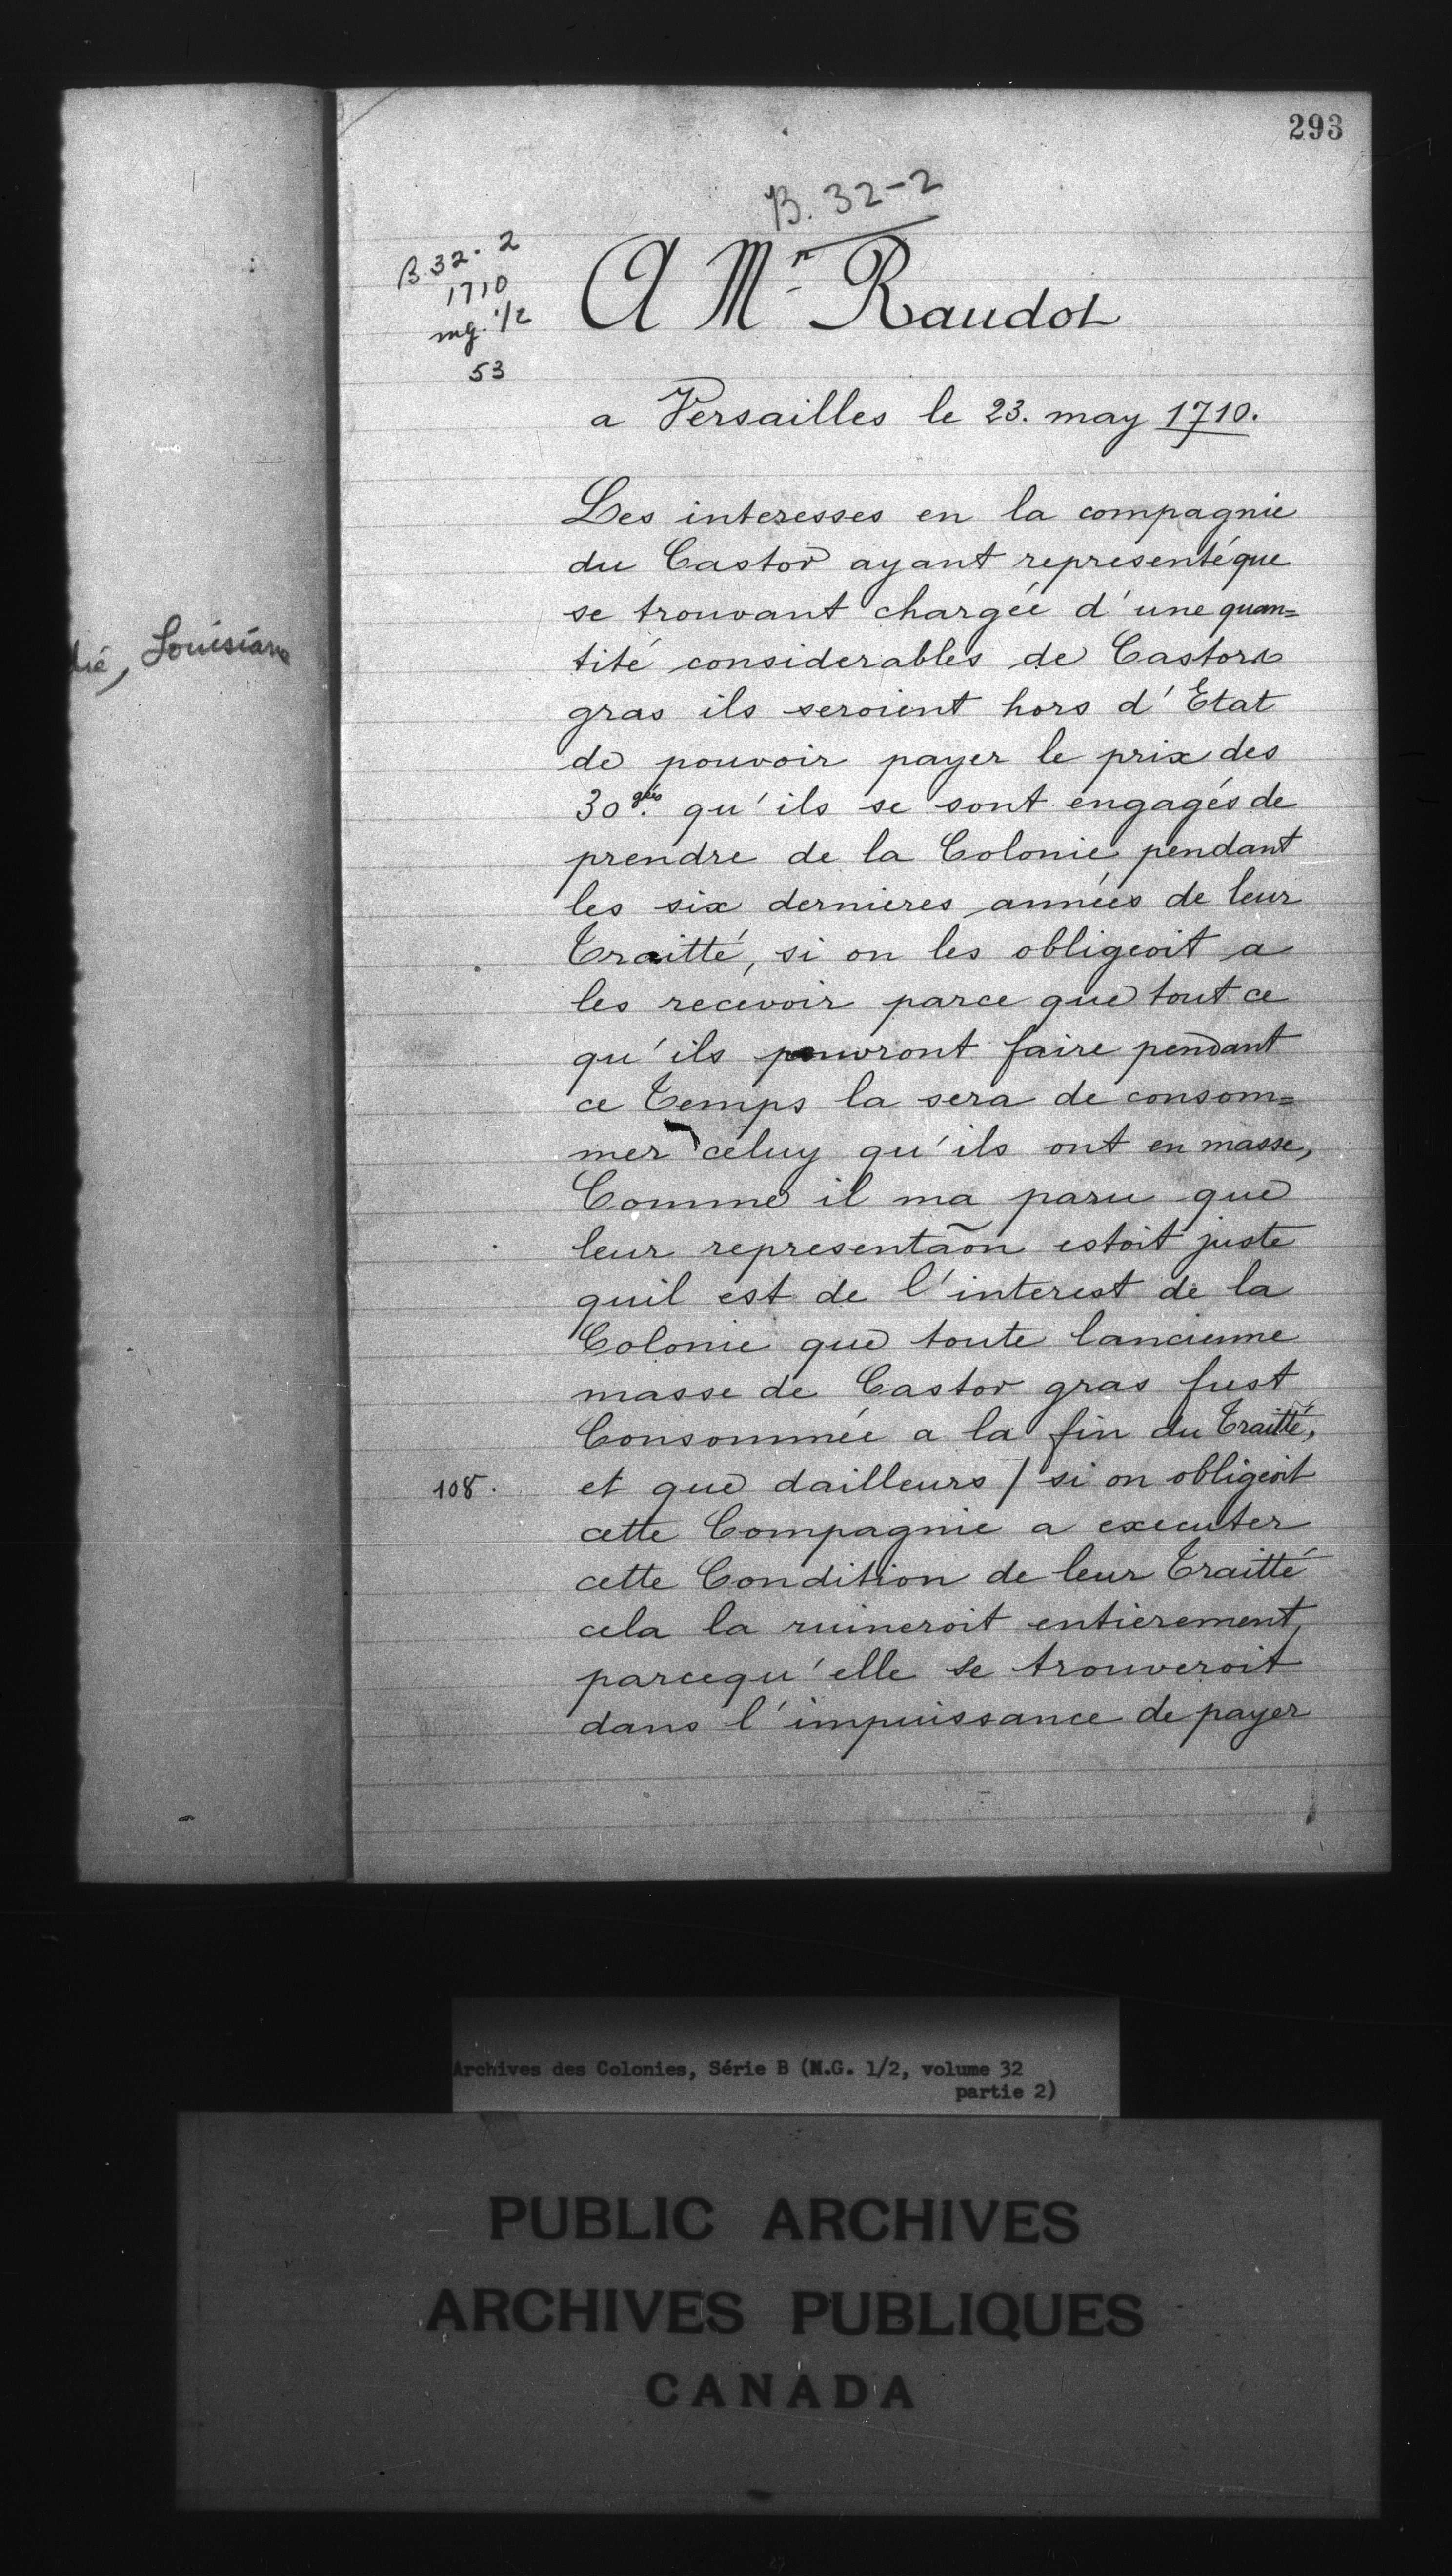 293
B. 32-2
B. 32-2
1710
mg. 1/2
53
A Mr Raudot
a Versailles le 23. may 1710.
Les interesses en la compagnie
du Castor ayant representé que
se trouvant chargée d'une quan=
tité considerables de Castors
gras ils seroient hors d'Etat
de pouvoir payer le prix des
30 qu'ils se sont engagés de
prendre de la Colonie pendant
les six dernieres années de leur
Traitté, si on les obligeoit a
les recevoir parce que tout ce
qu'ils pouvront faire pendant
ce Temps la sera de consom=
mer celuy qu'ils ont en masse,
Comme il ma paru que
leur representaõn estoit juste
quil est de l'interest de la
Colonie que toute lancienne
masse de Castor gras fust
Consommée a la fin du Traitté,
108. et que dailleurs / si on obligeoit
cette Compagnie a executer
cette Condition de leur Traitté
cela la ruineroit entièrement,
parcequ'elle se trouveroit
dans l'impuissance de payer
lié, Louisiane
Archives des Colonies, Série B (M.G. 1/2, volume 32
partie 2)
PUBLIC ARCHIVES
ARCHIVES PUBLIQUES
CANADA